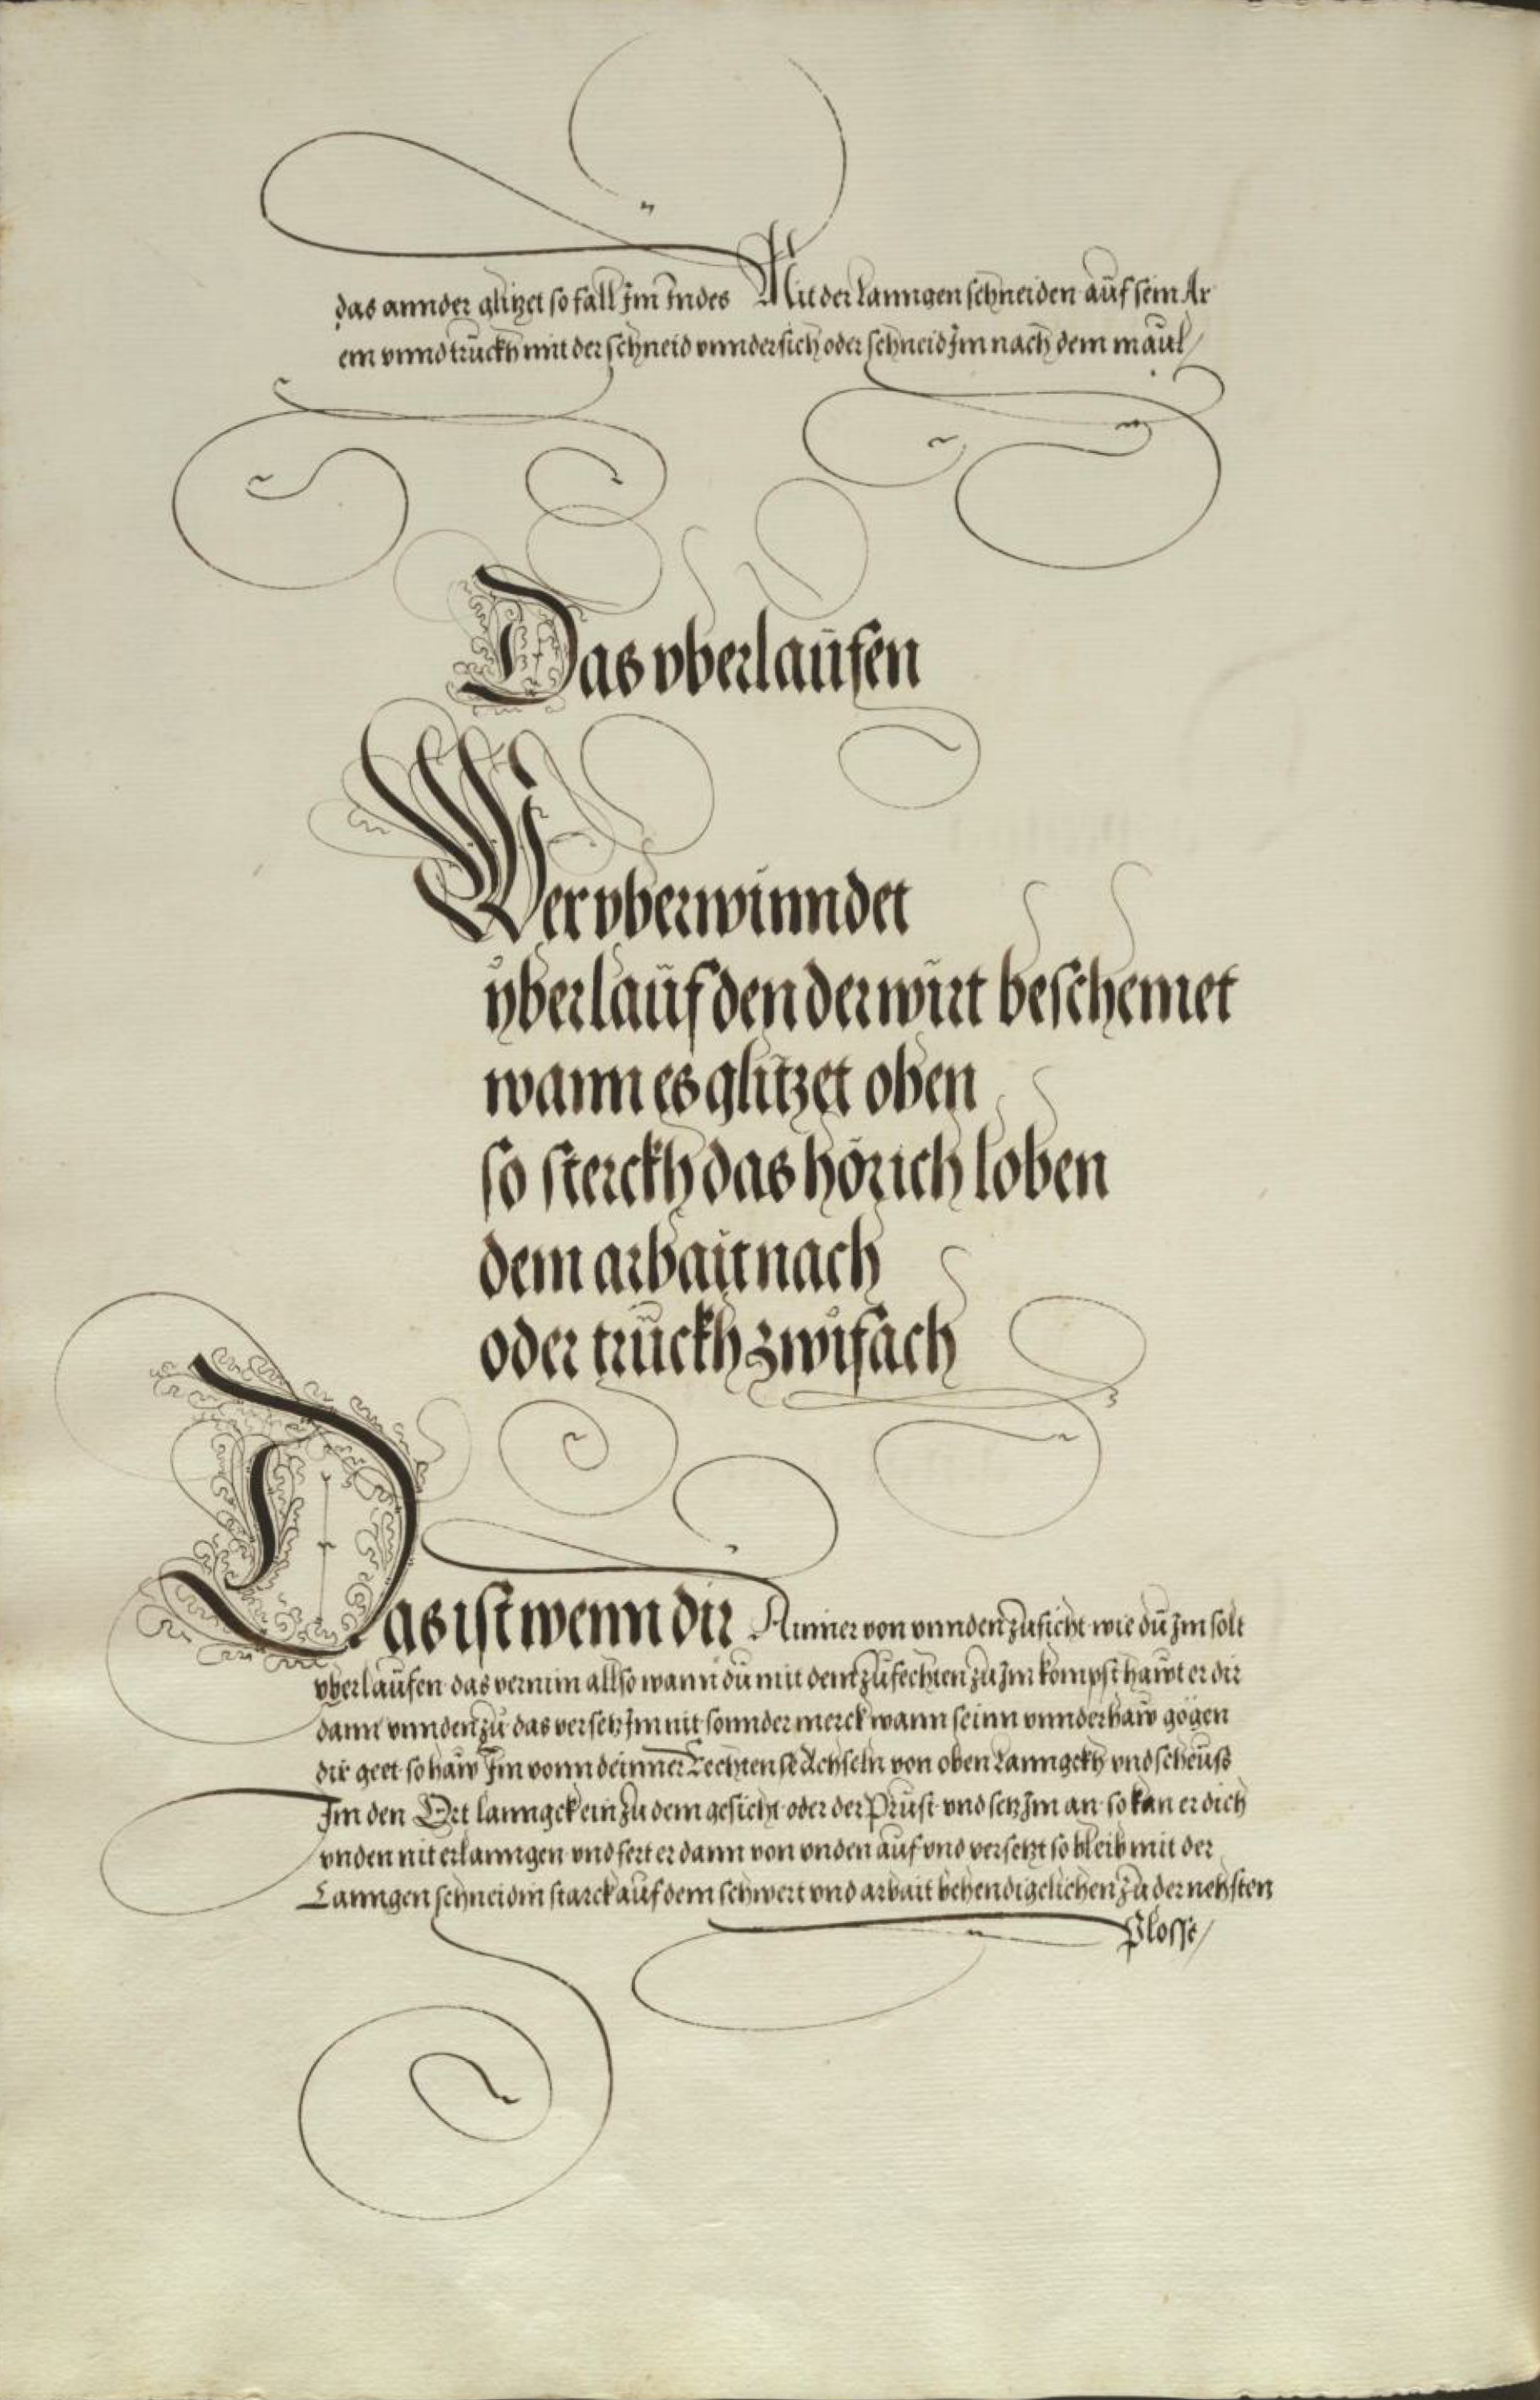 das annder glitzet so fall Im Indes Mit der Lanngen schneiden auf sein Ar
em vnnd truckh mit der schneid vnndersich oder schneid Im nach dem maul /
Das vberlaufen
Wer vberwinndet
vberlauf den der wirt beschemet
wann es glitzet oben
so sterckh das hör ich loben
dem arbait nach
oder truckh zwifach
Das ist wenn dir Ainner von vnnden zusicht wie du Im solt
vberlaufen das vernim allso wann du mit dem zufechten zu Im kompst hawt er dir
dann vnnden zu das versetz Im nit sonnder merck wann sein vnnderhaw gögen
dir geet so haw Im vonn deinner Rechten Achseln von oben Lanngckh vnd scheuss
Im den Ort lanngck ein zu dem gesicht oder der Prust vnd setz Im an so kan er dich
vnden nit erlanngen vnd fert er dann von vnden auf vnd versetzt so bleib mit der
Lanngen schneidin starck auf dem schwert vnd arbait behendigelichen zu der nehsten
Plosse /